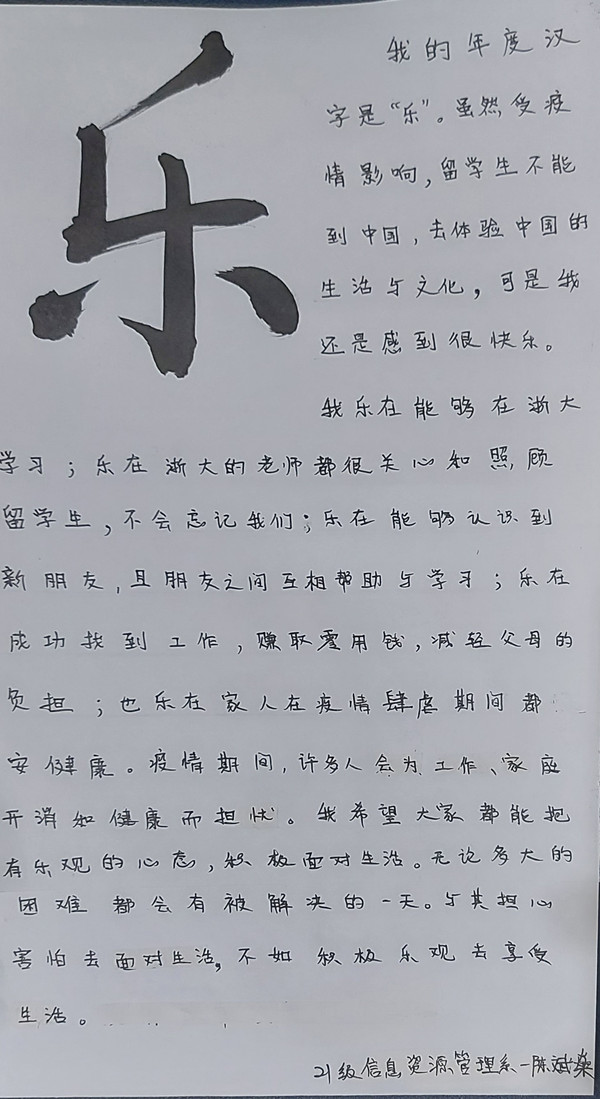 乐
我的年度汉
字是“乐”。虽然受疫
情影响,留学生不能
到中国,去体验中国的
生活与文化,可是我
还是感到很快乐。
我乐在能够在浙大
学习;乐在浙大的老师都很关心和照顾
留学生,不会忘记我们;乐在能够认识到
新朋友,且朋友之间互相帮助与学习;乐在
成功找到工作,赚取零用钱,减轻父母的
负担;也乐在家人在疫情肆虐期间都
安健康。疫情期间,许多人会为工作、家庭
开消和健康而担忧。我希望大家都能抱
有乐观的心态,积极面对生活。无论多大的
困难都会有被解决的一天。与其担心
害怕去面对生活,不如积极乐观去享受
生活。
21级信息资源管理系-陈斌燊